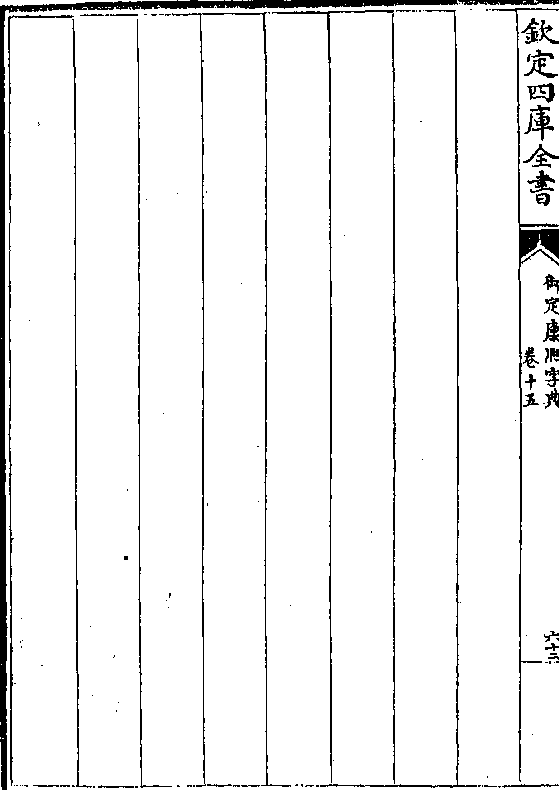 欽定四庫全書
御定康熙字典
卷十五
六十二